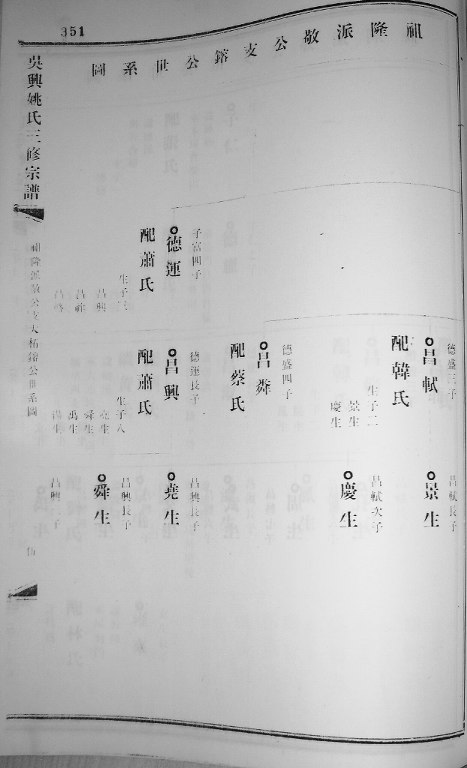 351
祖隆派敬公支鎔公世系圖
吳興姚氏三修宗譜
德盛三子
昌軾
配韓氏
生子二
景生
慶生
德盛四子
昌粦
配蔡氏
子富四子
德運
配蕭氏
生子三
昌興
德運長子
昌興
配蕭氏
生子八
堯生
舜生
禹生
湯生
昌軾長子
景生
昌軾次子
慶生
昌興長子
堯生
昌興長子
舜生
昌興
子